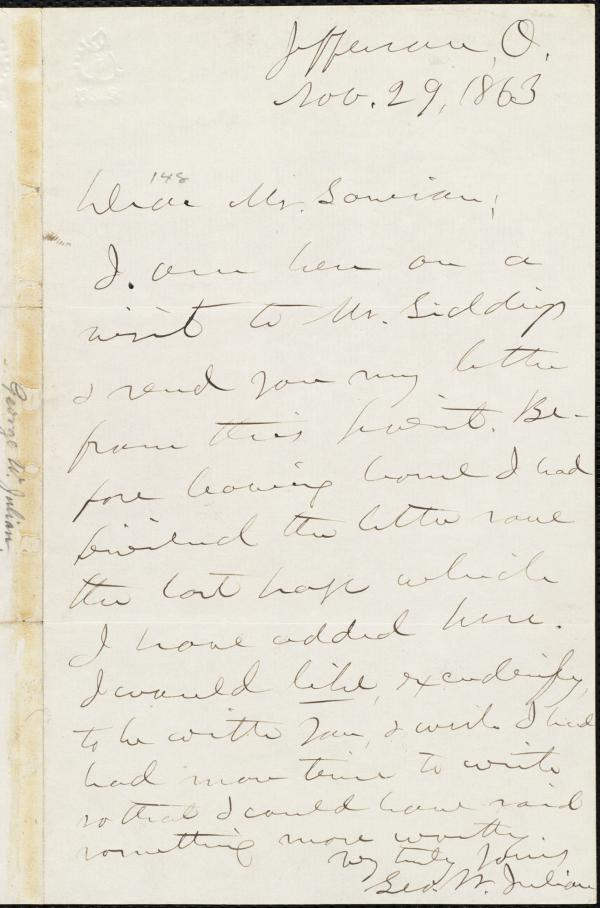 Jefferson, O.
Nov. 29, 1863
148
Dear Mr. Garrison;
I am here on a
visit to Mr. Giddings
& send you my letter
from this point. Be-
fore leaving home I had
finished the letter save
the last page which
I have added here.
I would like, exceedingly,
to be with you, & wish I had
had more time to write
so that I could have said
something more worthy.
Very truly Yours
Geo. W. Julian
George W. Julian.